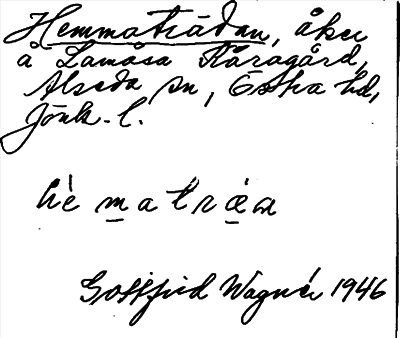 Hemmaträdan, åker
å Lamåsa Råragård,
Alseda sn, Östra hd,
Jönk. l.
hè matræn
Gottfrid Wagnér 1946